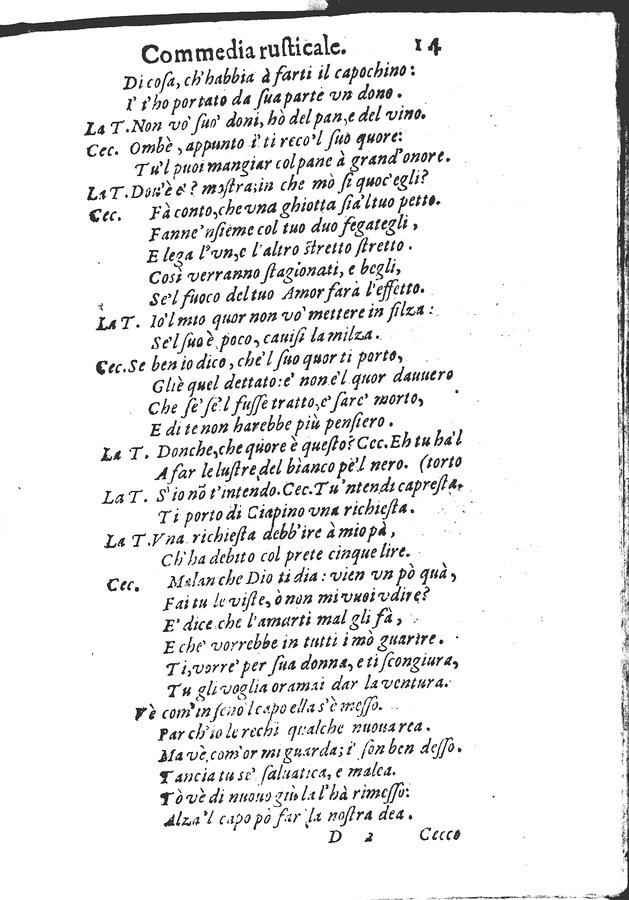 Commedia rusticale. 14
Di cosa, ch'habbia à farti il capochino:
I' t'ho portato da sua parte vn dono.
La T. Non vo' suo' doni, hò del pan, e del vino.
Cec. Ombè, appunto i' ti reco'l suo quore:
Tu'l puoi mangiar col pane à grand'onore.
La T. Dou'è e'? mostra; in che mò si quoc'egli?
Cec. Fà conto, che vna ghiotta sia'l tuo petto.
Fanne'nsieme col tuo duo fegategli,
E lega l'vn, e l'altro stretto stretto.
Così verranno stagionati, e begli,
Se'l fuoco del tuo Amor farà l'effetto.
La T. Io'l mio quor non vo' mettere in filza:
Se'l suo è poco, cauisi la milza.
Cec. Se ben io dico, che'l suo quor ti porto,
Gliè quel dettato: e' non è'l quor dauuero
Che se' se'l fusse tratto, e' sare' morto,
E di te non harebbe più pensiero.
La T. Donche, che quore è questo? Cec. Eh tu ha'l
A far le lustre del bianco pè'l nero. (torto
La T. S'io nõ t'intendo. Cec. Tu'ntendi capresta,
Ti porto di Ciapino vna richiesta.
La T. Vna richiesta debb'ire à mio pà,
Ch'ha debito col prete cinque lire.
Cec. Malan che Dio ti dia: vien vn pò quà,
Fai tu le viste, ò non mi vuoi vdire?
E' dice che l'amarti mal gli fà,
E che' vorrebbe in tutti i mò guarire.
Ti, vorre' per sua donna, e ti scongiura,
Tu gli voglia oramai dar la ventura.
Vè com'in seno'l capo ella s'è messo.
Par ch'io le rechi qualche nuoua rea.
Ma vè, com'or mi guarda; i' son ben desso.
Tancia tu se' saluatica, e malea.
Tò vè di nuouo giù la l'hà rimesso:
Alza'l capo pò far la nostra dea.
D 2 Cecco